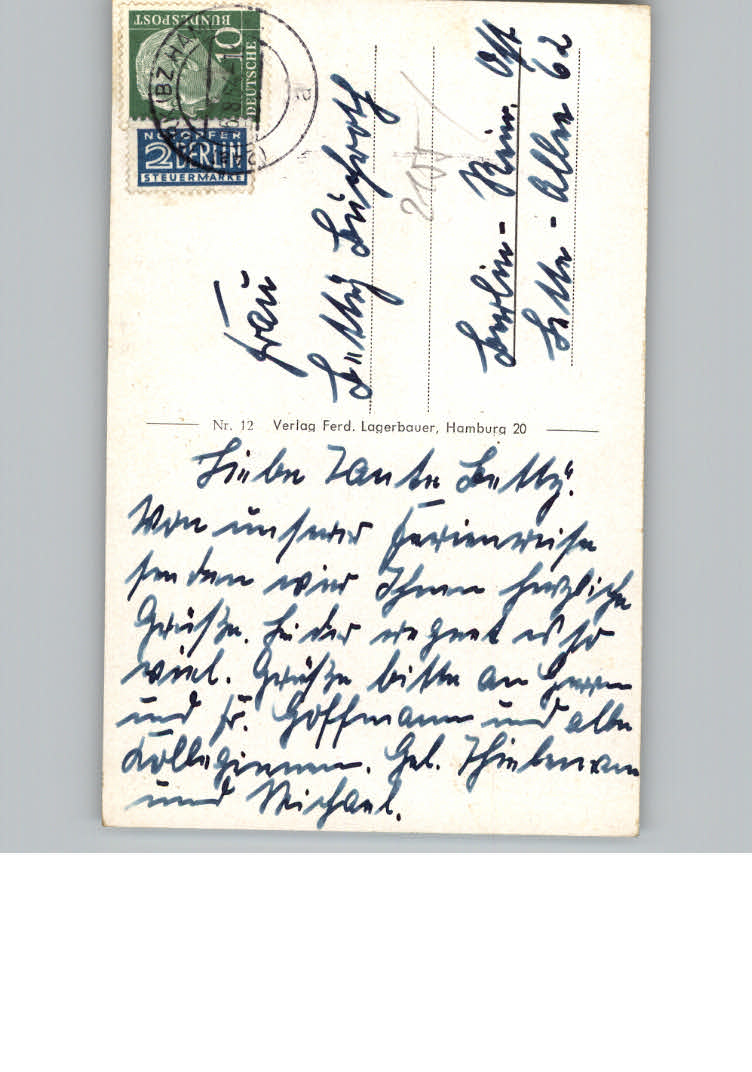 DEUTSCHE
BUNDESPOST
10
NOTOPFER
2 BERLIN
STEUERMARKE
Frau
Betty
Berlin-
Nr. 12 Verlag Ferd. Lagerbauer, Hamburg 20
Liebe Tante Betty!
Von unserer Ferienreise
senden wir Ihnen herzliche
Grüße. Leider regnet es so
viel. Grüße bitte an Herrn
und Fr. Hoffmann und alle
Kolleginnen.
und Michael.